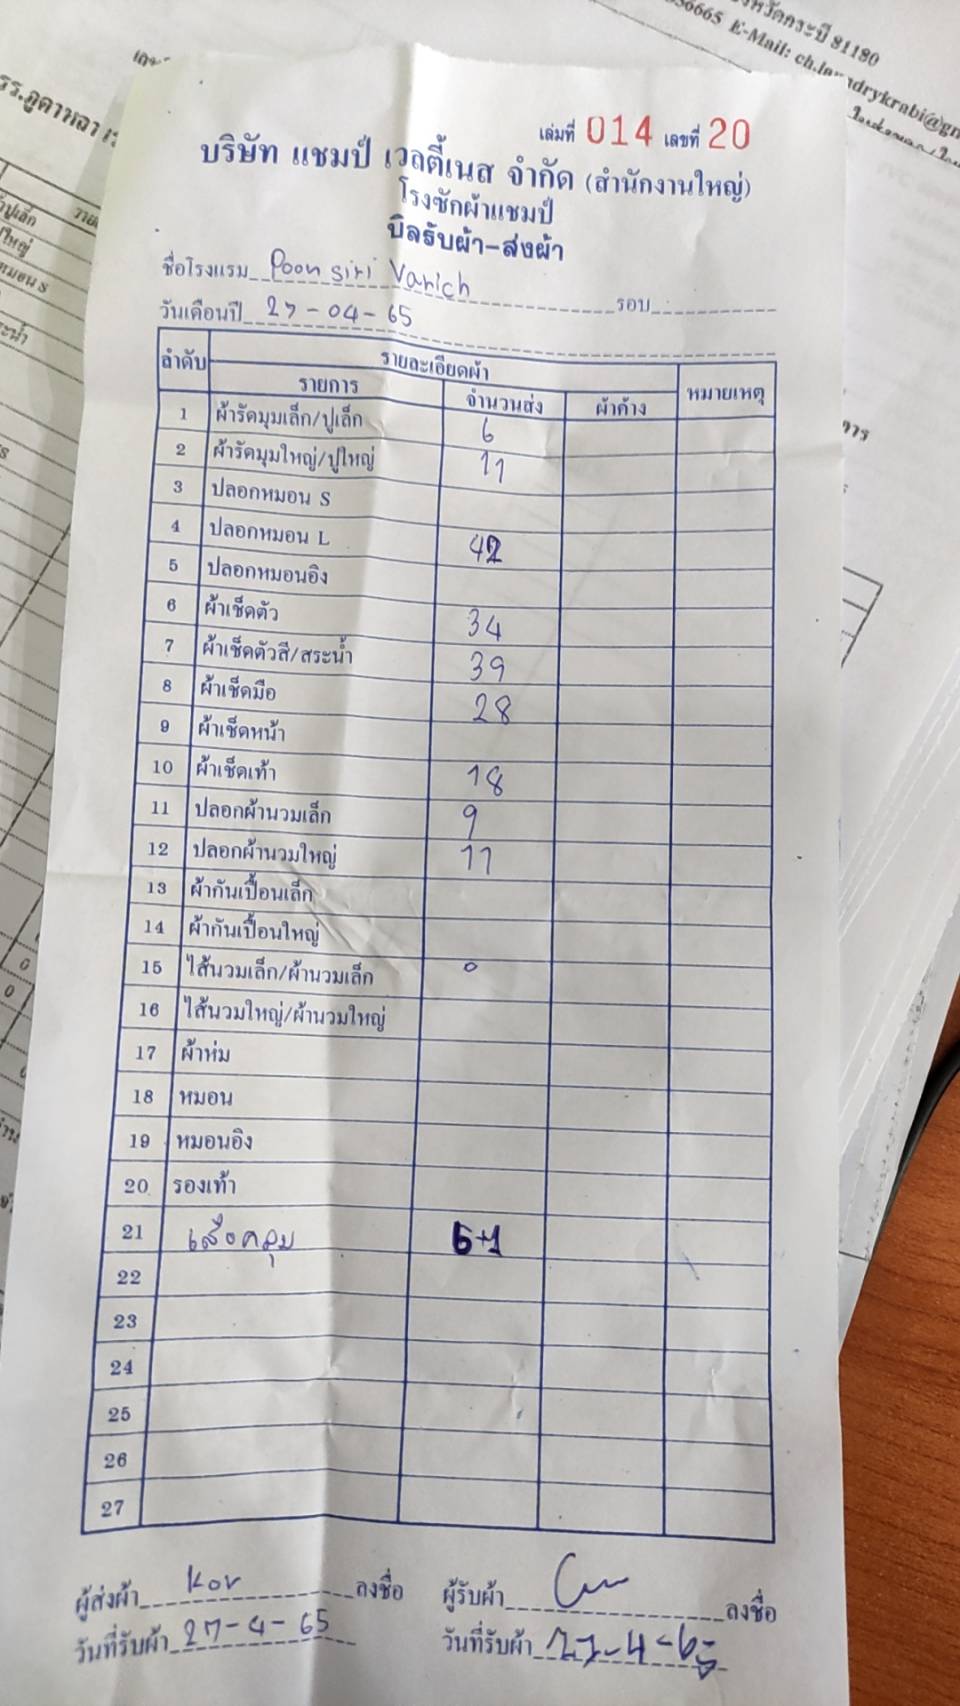 จังหวัดกระบี่ 81180
E-Mail: ch.laundrykrabi@gm
เล่มที่ 014 เลขที่ 20
บริษัท แชมป์ เวลตี้เนส จำกัด (สำนักงานใหญ่)
โรงซักผ้าแชมป์
บิลรับผ้า-ส่งผ้า
ชื่อโรงแรม Poonsiri Varich รอบ
วันเดือนปี 27-04-65
ลำดับ รายละเอียดผ้า หมายเหตุ
รายการ จำนวนส่ง ผ้าค้าง
1 ผ้ารัดมุมเล็ก/ปูเล็ก 6
2 ผ้ารัดมุมใหญ่/ปูใหญ่ 11
3 ปลอกหมอน S
4 ปลอกหมอน L 42
5 ปลอกหมอนอิง
6 ผ้าเช็ดตัว 34
7 ผ้าเช็ดตัวสี/สระน้ำ 39
8 ผ้าเช็ดมือ 28
9 ผ้าเช็ดหน้า
10 ผ้าเช็ดเท้า 18
11 ปลอกผ้านวมเล็ก 9
12 ปลอกผ้านวมใหญ่ 11
13 ผ้ากันเปื้อนเล็ก
14 ผ้ากันเปื้อนใหญ่
15 ไส้นวมเล็ก/ผ้านวมเล็ก 0
16 ไส้นวมใหญ่/ผ้านวมใหญ่
17 ผ้าห่ม
18 หมอน
19 หมอนอิง
20 รองเท้า
21 เสื้อคลุม 6+1
22
23
24
25
26
27
ผู้ส่งผ้า Kor ลงชื่อ ผู้รับผ้า ลงชื่อ
วันที่รับผ้า 27-4-65 วันที่รับผ้า 27-4-65